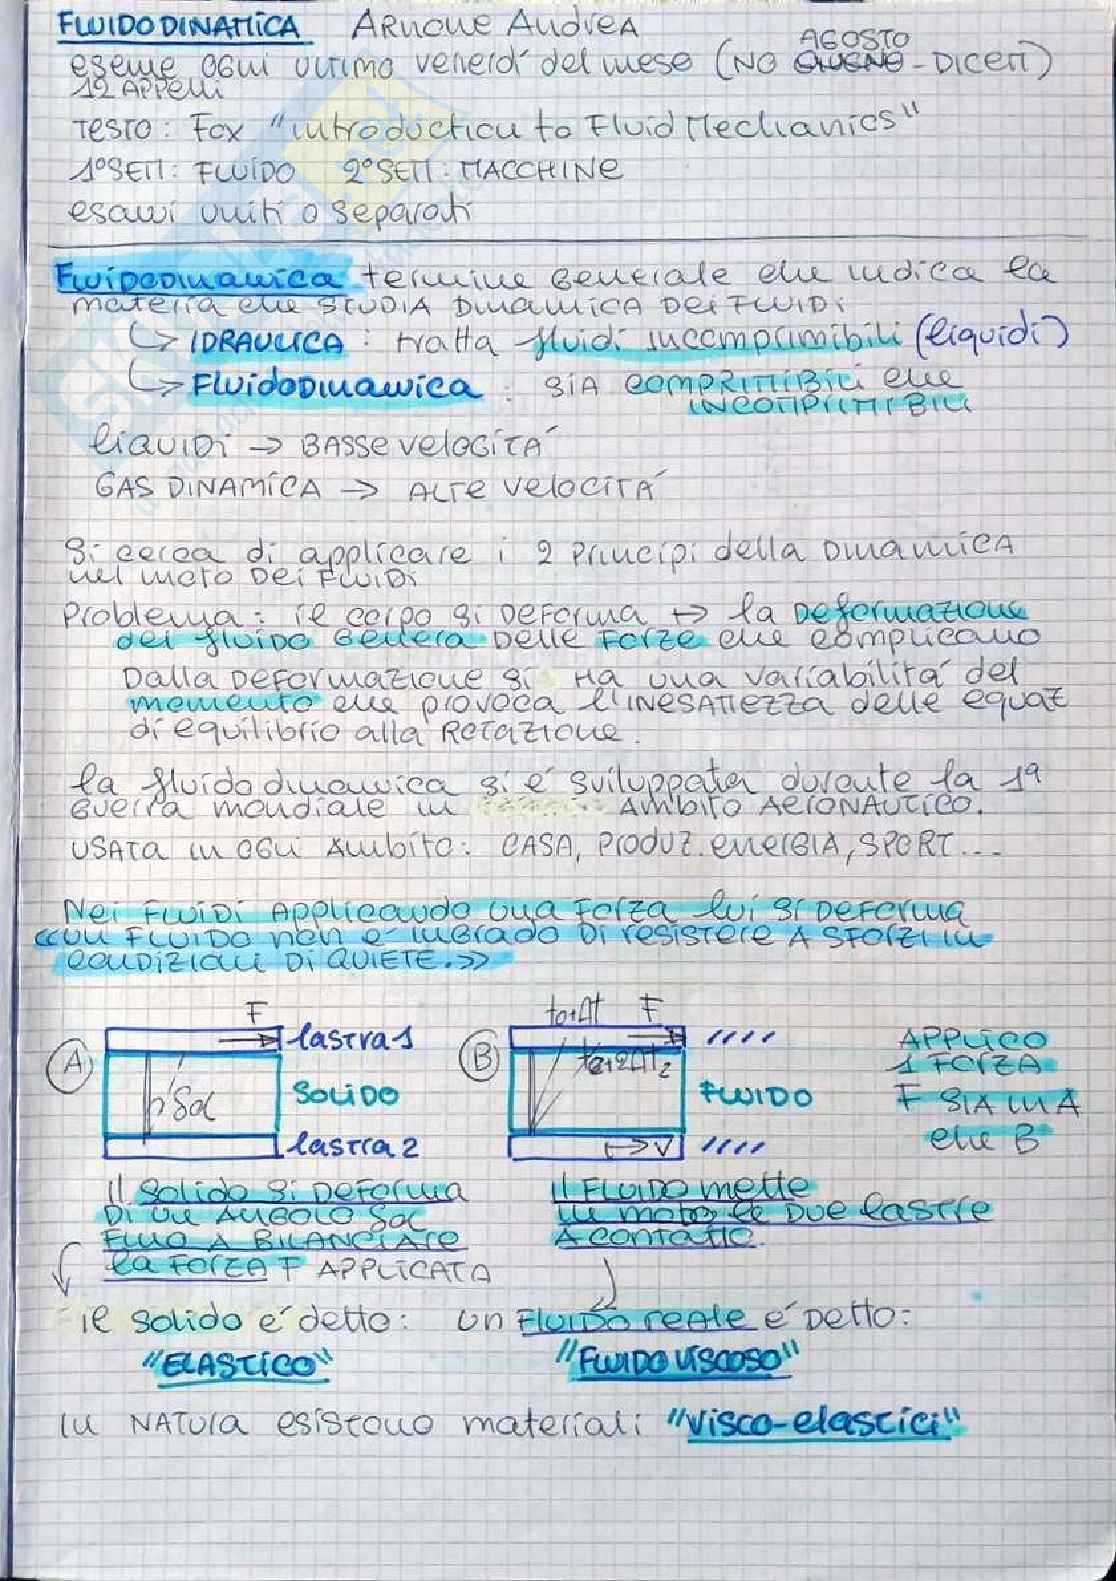 FLUIDODINAMICA Arnone Andrea
esame ogni ultimo venerdí del mese (NO GIUGNO AGOSTO - DICEM)
12 APPELLI
TESTO: Fox "introduction to Fluid Mechanics"
1°SEM: FLUIDO 2°SEM: MACCHINE
esami uniti o separati
Fluidodinamica termine generale che indica la
materia che STUDIA DINAMICA DEI FLUIDI
↳ IDRAULICA: tratta fluidi incomprimibili (liquidi)
↳ FluidoDinamica: SIA COMPRIMIBILI che
INCOMPRIMIBILI
liquidi → BASSE velocitá
GAS DINAMICA → ALTE velocitá
Si cerca di applicare i 2 principi della Dinamica
nel moto dei FLUIDI
Problema: il corpo si deforma ↔ la Deformazione
del fluido genera delle Forze che complicano
Dalla Deformazione si ha una variabilitá del
momento che provoca l'INESATTEZZA delle equaz
di equilibrio alla Rotazione.
la fluidodinamica si é sviluppata durante la 1ª
guerra mondiale in AMBITO AERONAUTICO.
USATA in ogni Ambito: CASA, Produz. energIA, SPORT...
Nei FLUIDI Applicando una Forza lui si Deforma
«un FLUIDO non é in grado di resistere A SFORZI in
condizioni DI QUIETE.»
F to+Δt F
A lastra 1 B to+2Δt2 APPLICO
1 FORZA
δα SOLIDO FLUIDO F SIA in A
lastra 2 V che B
Il Solido si Deforma
Di un Angolo δα
Fino A BILANCIARE
la Forza F APPLICATA
Il FLUIDO mette
in moto le due lastre
A contatto.
il solido é detto: un Fluido reale é Detto:
"ELASTICO" "FLUIDO VISCOSO"
In NATURA esistono materiali "visco-elastici"